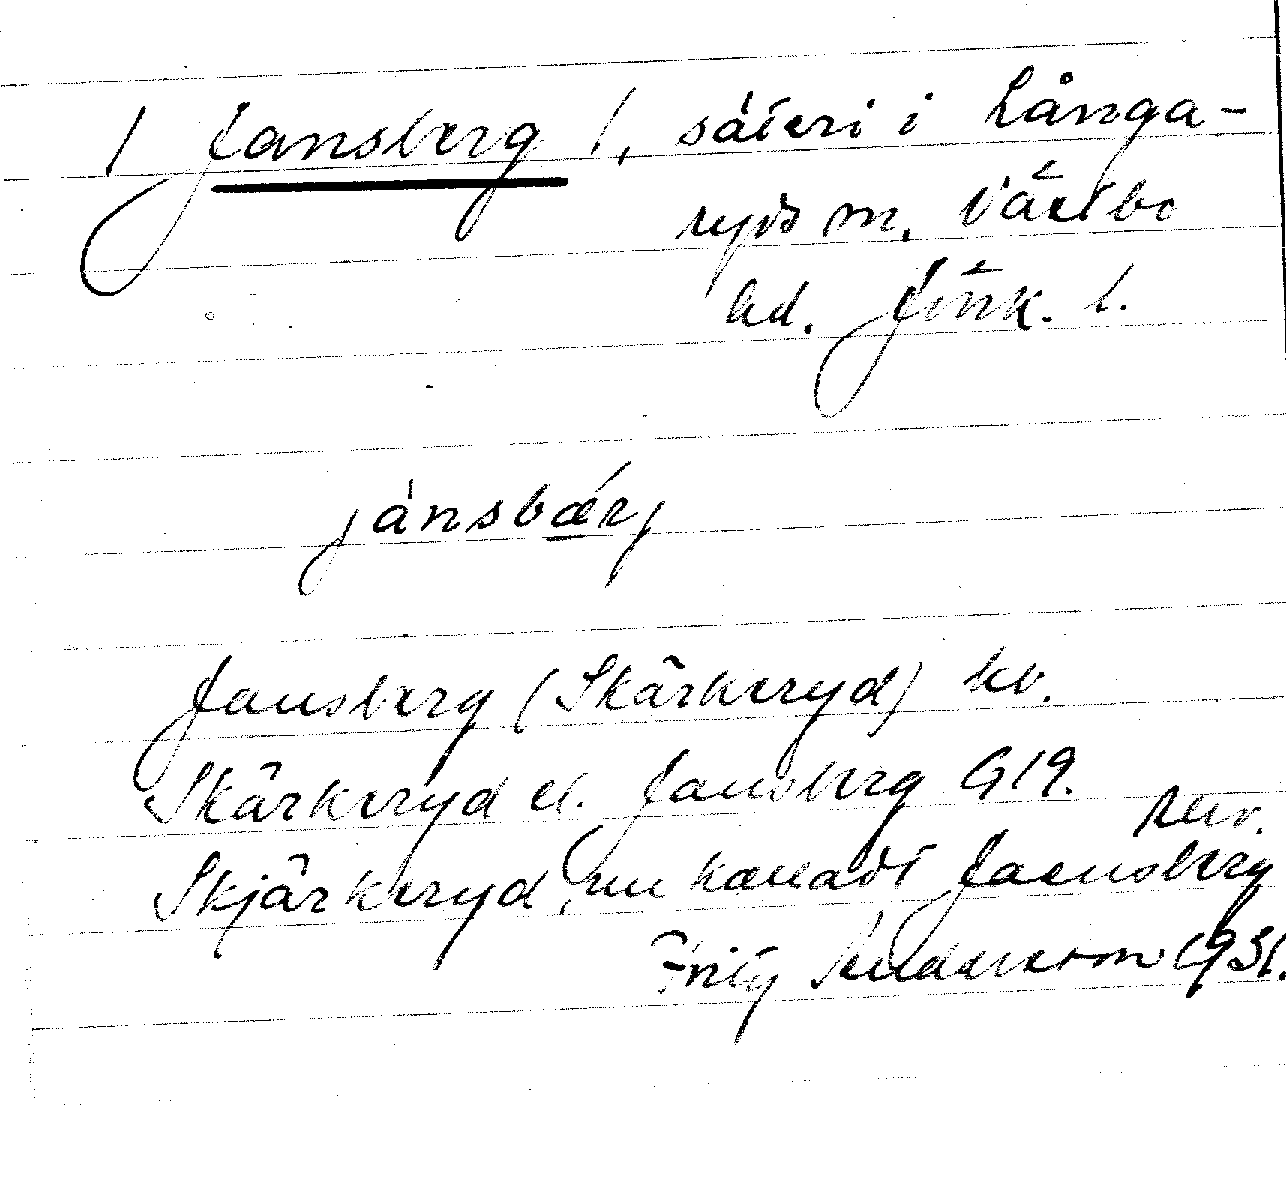 / Jansberg /, säteri i Långa-
ryds sn, Västbo
hd. Jönk. l.
jánsbǽ̲rj
Jansberg (Skärkeryd) kb.
Skärkeryd el. Jansberg G 19.
Skjärkeryd, nu kalladt Jaensberg
Fritz Andersson 1931.